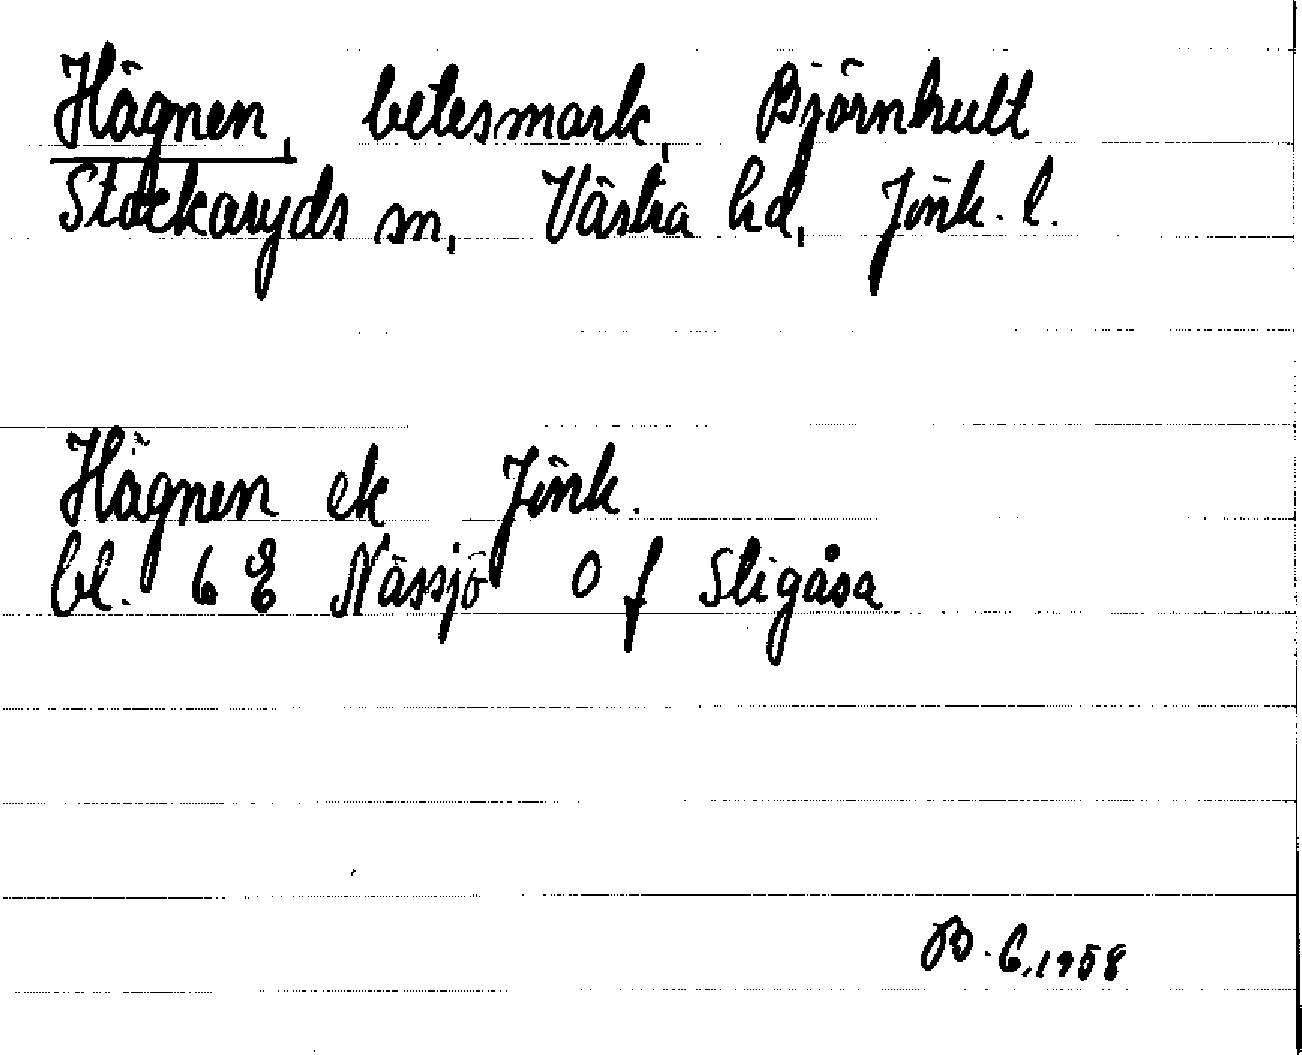 Hägnen, betesmark, Björnhult
Stockaryds sn, Västra hd, Jönk. l.
Hägnen ek Jönk.
bl. 6 E Nässjö O f Stigåsa
B. C. 1958